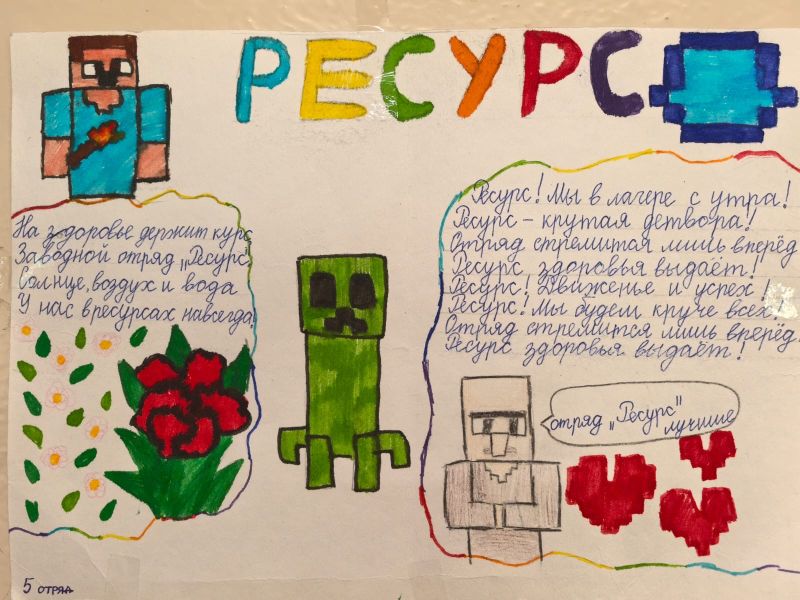 РЕСУРС
На здоровье держит курс
Заводной отряд „Ресурс"
Солнце, воздух и вода
У нас в ресурсах навсегда!
Ресурс! Мы в лагере с утра!
Ресурс - крутая детвора!
Отряд стремится лишь вперёд
Ресурс здоровья выдаёт!
Ресурс! Движенье и успех!
Ресурс! Мы будем круче всех!
Отряд стремится лишь вперёд.
Ресурс здоровья выдаёт!
отряд „Ресурс"
лучшие
5 отряд